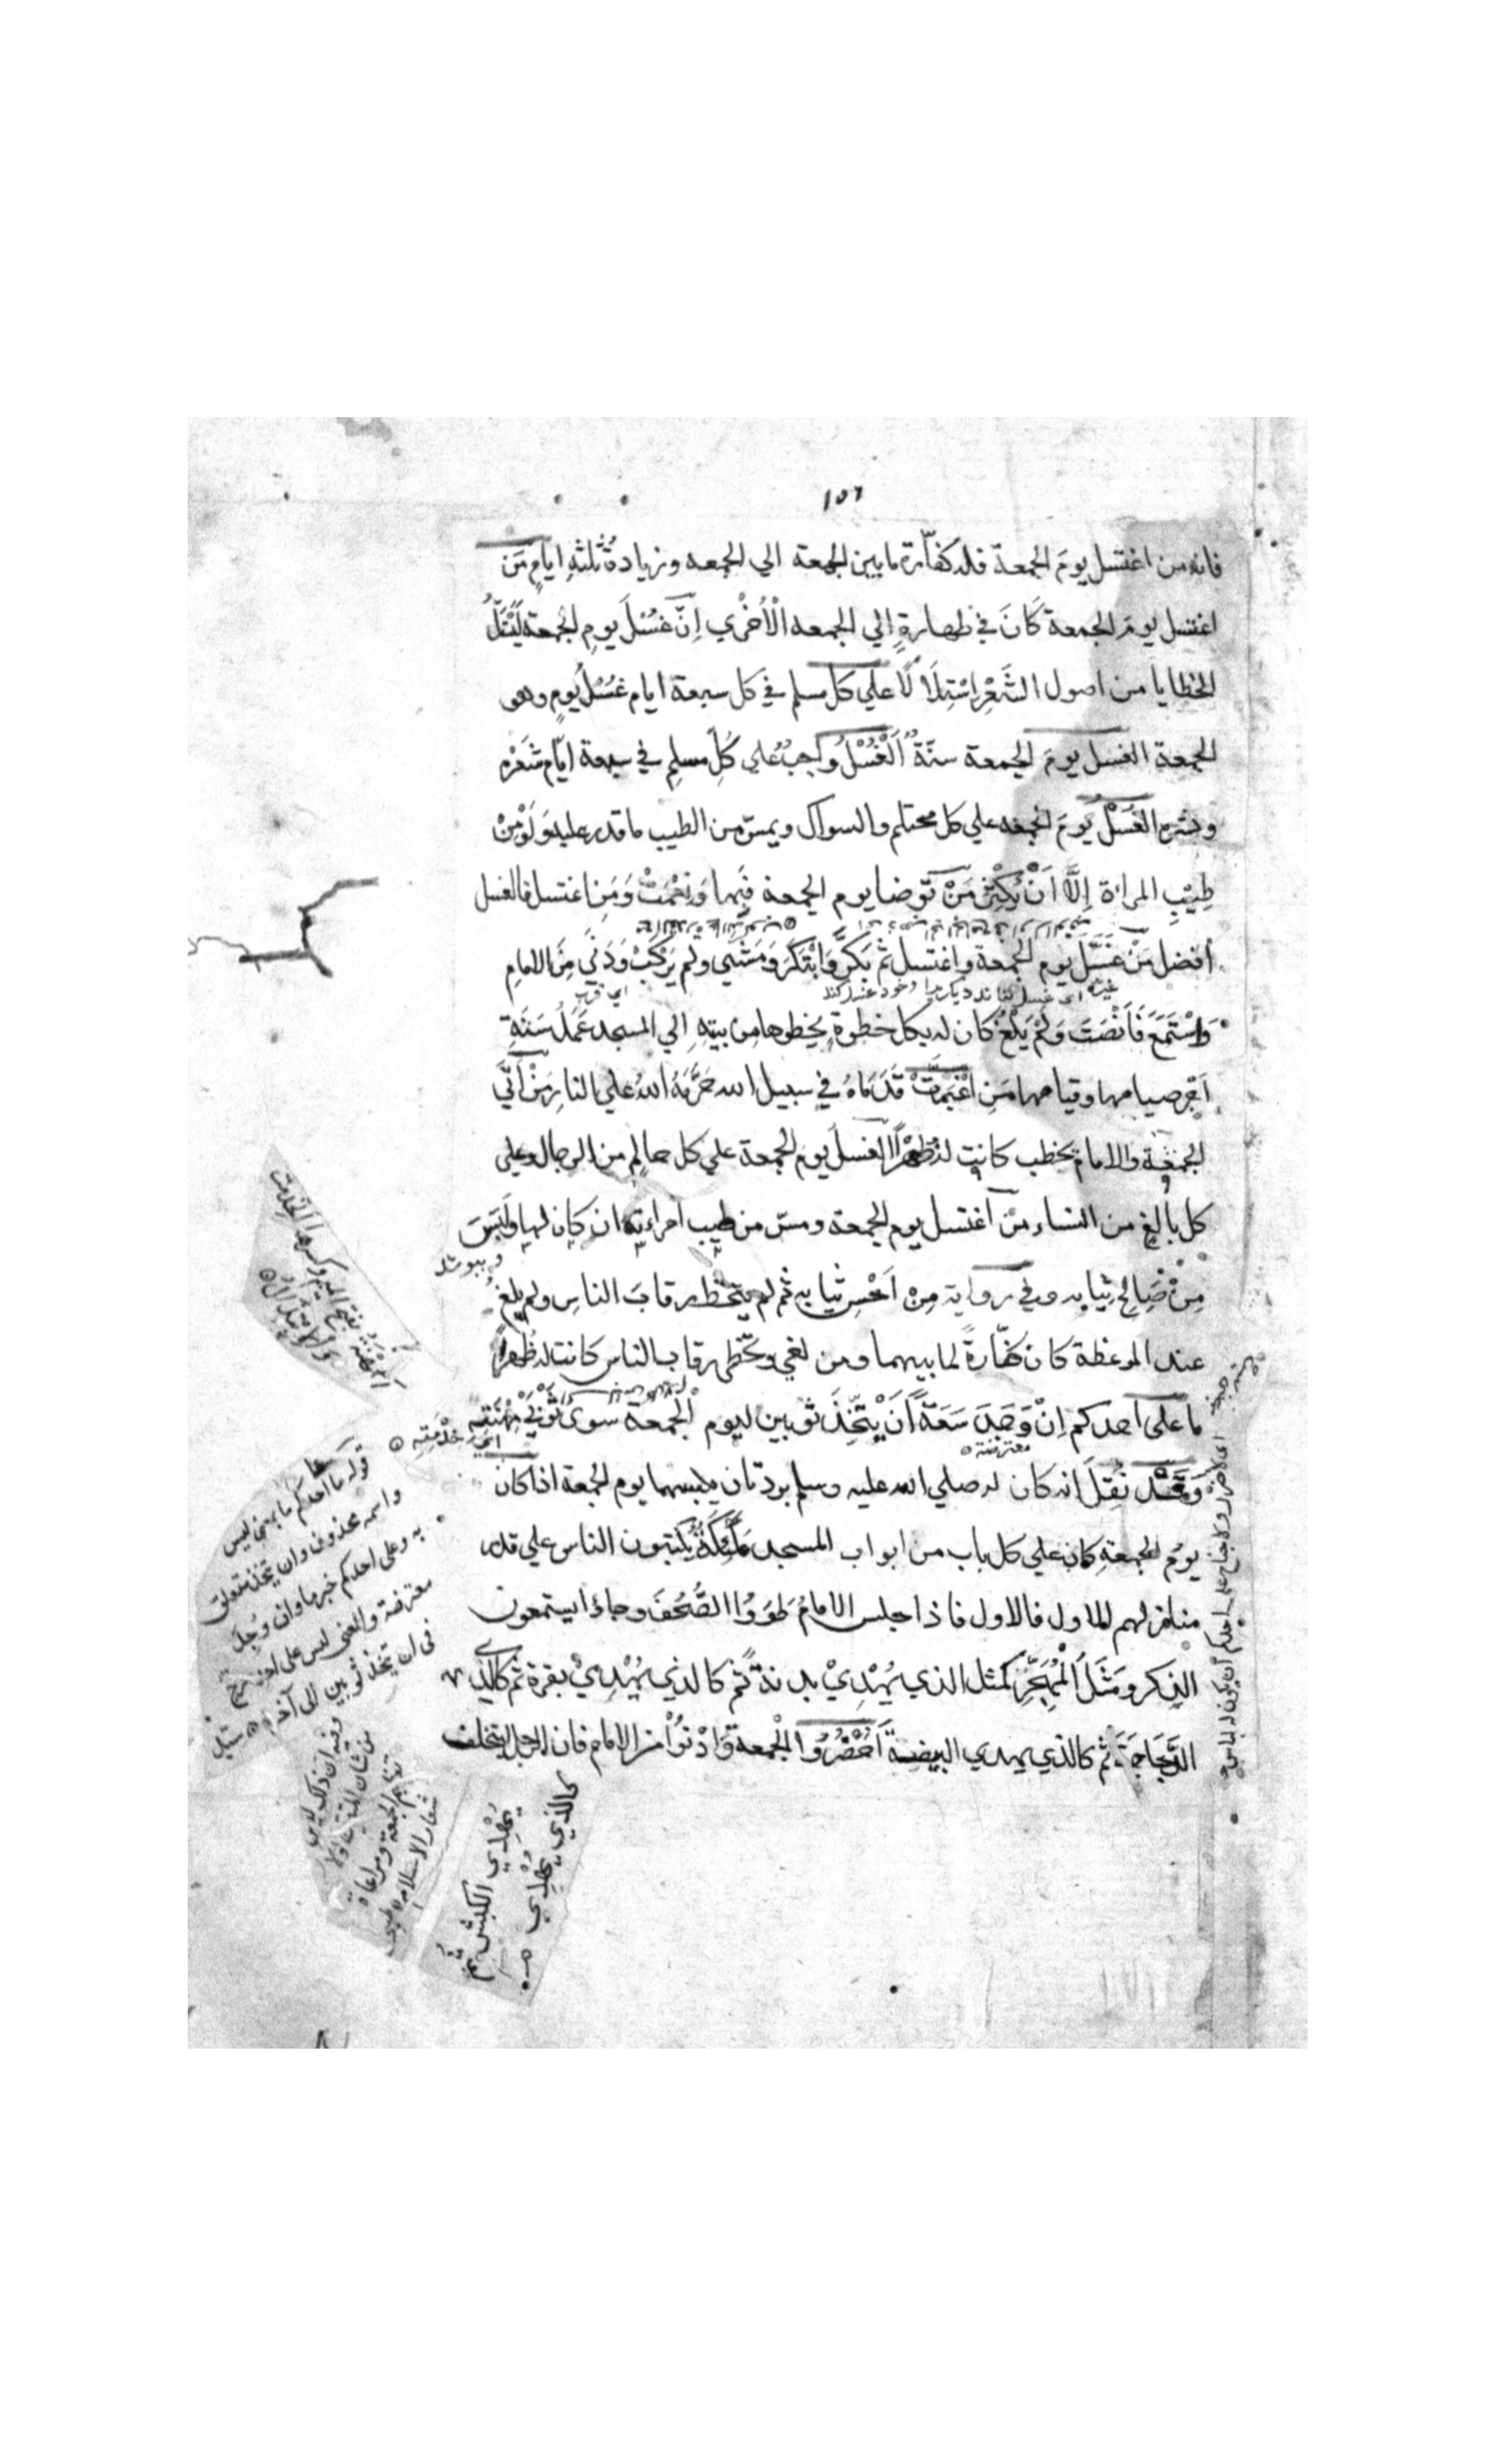 ١٥٦
فانه من اغتسل يومَ الجمعة فله كفّارة ما بين الجمعة الي الجمعه وزيادةُ ثلثةِ ايامٍ مَن
اغتسل يومَ الجمعة كَانَ في طهارةٍ الي الجمعه الْأُخْري اِنَّ غُسْلَ يومِ الجمعة لَيَسُلُّ
الخطايا من اصول الشَّعْرِ اسْتِلَالًا علي كل مسلم في كل سبعة ايام غُسْلُ يومٍ وهو
الجمعة الغسل يومَ الجمعة سنّةٌ اَلْغُسْلُ وَاجِبٌ علي كُلِّ مسلمٍ في سبعة ايّام شَعَرَه
وبشره الغُسْلُ يَومَ الجمعه علي كل محتلم والسواك ويمسّ من الطيب ما قدر عليه وَلَوْ مِنْ
طِيْبِ المراة اِلَّا اَنْ يُكْثِرَ مَنْ تَوضا يوم الجمعة فَبِها وَنِعْمَتْ وَمَنِ اغتسل فالغسل
أفضل مَنْ غَسَّلَ يوم الجمعة واغتسل ثم بَكَّرَ وَابْتَكَرَ وَمَشَي ولم يَرْكَبْ وَدَنَي مِنَ الامامِ
اي غسل كناند ديكريرا وخود غسل كند اي قرب
وَاسْتَمَعَ فَاَنْصَتَ وَلَمْ يَلْغُ كان له بكل خطوةٍ يخطوها من بيتِهِ الي المسجد عَمَلُ سَنَةٍ
اَجْر صيامها وقيامها مَنِ اغْبَرَّتْ قَدَمَاهُ في سبيل الله حَرَّمَهُ اللهُ علي النارِ مَنْ اَتَي
الجمعة والامام يخطب كانت له ظُهْرًا الغسلُ يومَ الجمعة علي كل حالمٍ من الرجال وعلى
كل بالغٍ من النساء مَنْ اغتسل يوم الجمعة ومسّ من طيب امراءته ان كان لها ولَبِسَ
وبپوشد
مِنْ صَالِحِ ثيابه وفي رواية مِنْ اَحْسِن ثيابه ثم لم يتخطّ رقابَ الناسِ ولم يلغُ
عند الموعظة كان كفّارةً لما بينهما ومن لغي وتخطى رقاب الناس كانت له ظُهرًا
ما على احدكم اِنْ وَجَدَ سَعَةً اَنْ يَتَّخِذَ ثوبين ليوم الجمعة سوي ثَوْبَيْ مِهْنَتِهِ
اي خِدْمَتِه
معترضة
وَقَدْ نُقِلَ انه كان له صلي الله عليه وسلم بردتان يلبسهما يوم الجمعة اذا كان
يومُ الجمعةِ كان علي كل باب من ابواب المسجد مَلٰئِكَةٌ يكتبون الناس علي قدر
منازلهم الاول فالاول فاذا جلس الامامُ طَوَوُا الصُّحُفَ وجاؤا يستمعون
الذِكر ومَثَلُ الْمُهَجِّرِ كمثل الذي يُهْدِيْ بدنةً ثم كالذي يُهْدِيْ بقرة ثم كالذي
الدَّجَاجَةَ ثم كالذي يهدي البيضة اَحْضُرُوا الْجمعة وَادْنُوْا من الامام فان الرجل يتخلف
كالذي يُهْدِي
يُهْدِي الكبش ثم
قوله ما على احدكم ما بمعنى ليس
واسمه محذوف وان يتخذ متعلق
به وعلى احدكم خبرها وان وجد
معترضة والمعنى ليس على احد
في ان يتخذ ثوبين الى آخره